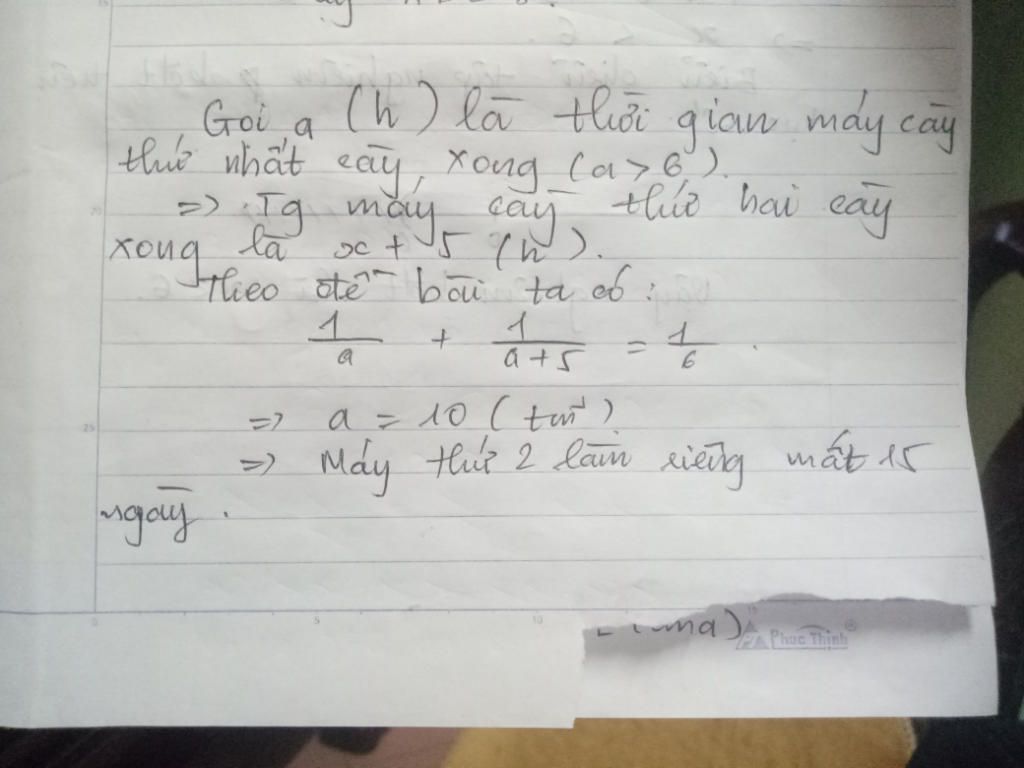 Gọi a (h) là thời gian máy cày
thứ nhất cày xong (a > 6).
=> Tg máy cày thứ hai cày
xong là x + 5 (h).
Theo đề bài ta có:
1/a + 1/(a + 5) = 1/6 .
=> a = 10 (tm)
=> Máy thứ 2 làm riêng mất 15
ngày .
Phuc Thinh ®